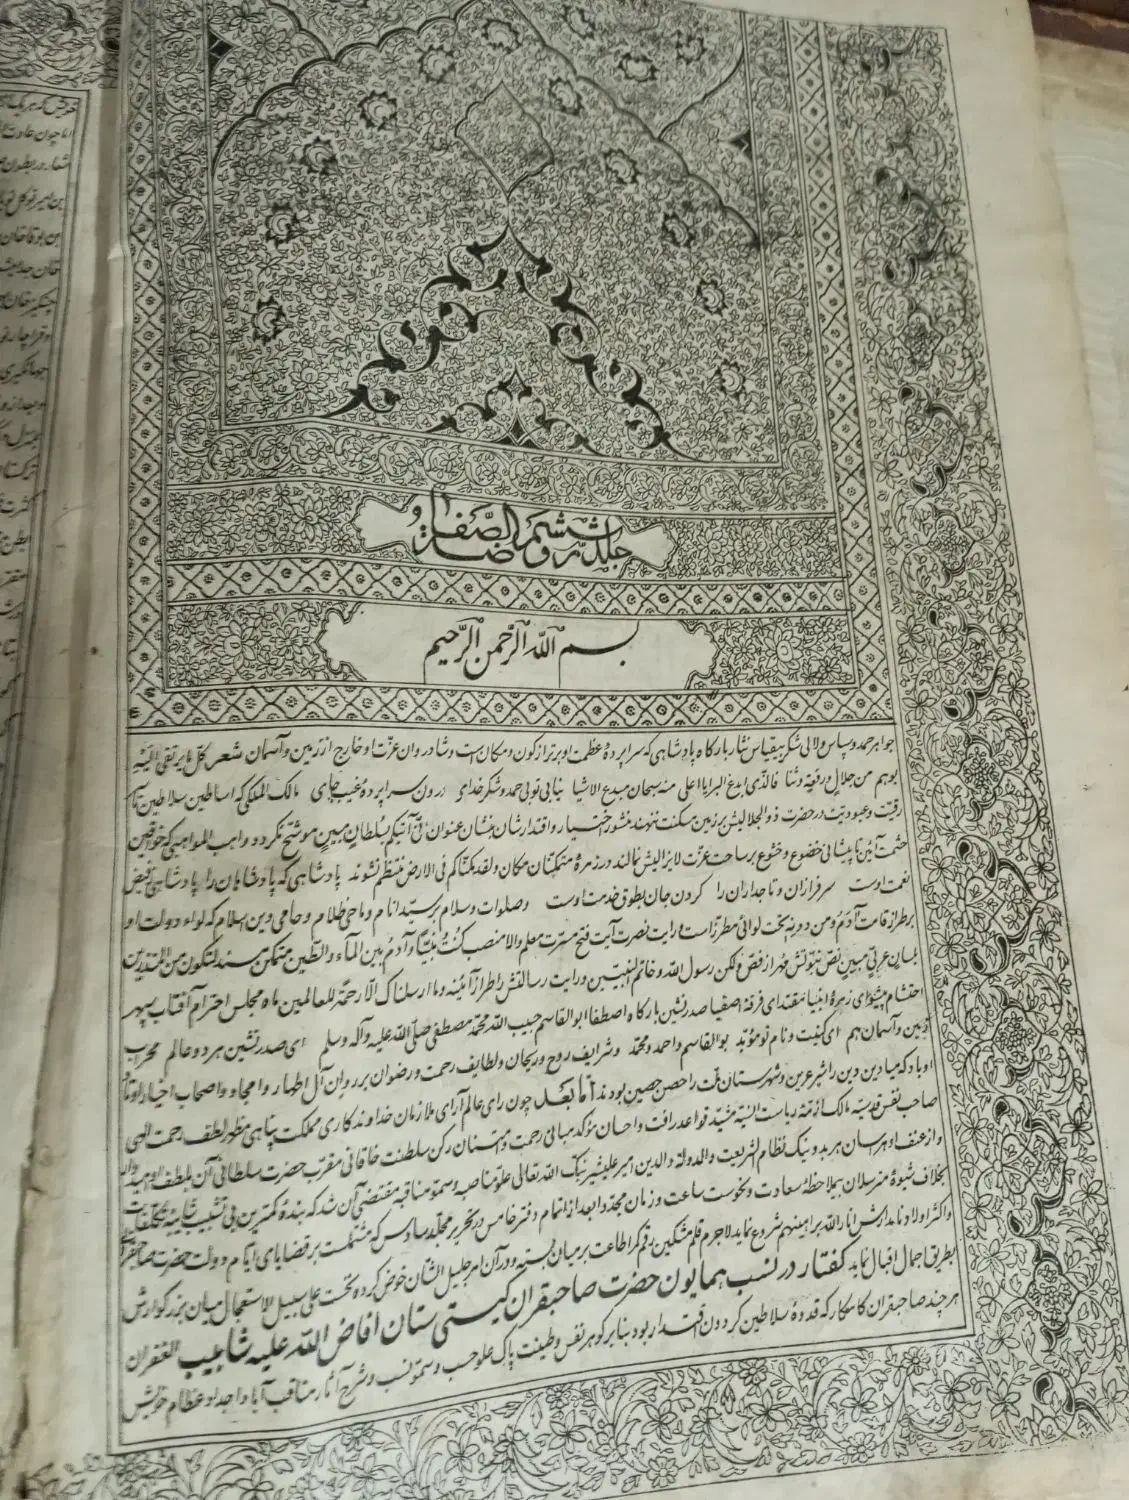 جلد ششم روضة الصفا
بسم الله الرحمن الرحیم
جواهر حمد و سپاس و لالی شکر بیقیاس نثار بارکاه پادشاهی که سراپردهٔ عظمت او برتر از کون و مکان است و شادروان عزت او خارج از زمین و آسمان شعر کل ما یرتقی الیه
بوهم من جلال و رفعة و ثنا فالذی ابدع البرایا اعلی منه سبحان مبدع الاشیا نیابی توبی حمد و شکر خدای درون سراپردهٔ غیب جای مالک الملکی که اساطین سلاطین تا
رقیت و عبودیت در حضرت ذو الجلالیش بر زمین مسکنت ننهند منشور اختیار و اقتدار شان بنشان عنوان آتیکم بسلطان مبین موشح نکردد و واهب المواهبی که خواقین
حشمت آئین تا پیشانی خضوع و خشوع بر ساحت عزت لایزالیش نمالند در زمرهٔ متمکنان مکان و لقد مکناکم فی الارض منتظم نشوند پادشاهی که پادشاهان را پادشاهی فیض
نعمت اوست سرفرازان و تاجداران را کردن جان بطوق خدمت اوست و صلوات و سلام بر سید انام و ماحی ظلام و حامی دین اسلام که لواء دولت او
بر طراز قامت آدم و من دونه تحت لوائی مطرز است و رایت نصرت آیت فتح مسرت معلم والا منصب کنت نبیا و آدم بین الماء و الطین متمکن مسند لتکون من المنذرین
بلسان عربی مبین نص نبوتش مهر از فص و لکن رسول الله و خاتم النبیین و رایت رسالتش را طراز آئینه و ما ارسلناک الا رحمة للعالمین ماه مجلس احترام آفتاب سپهر
احتشام پیشوای زمرهٔ انبیا مقتدای فرقهٔ اصفیا صدرنشین بارکاه اصطفا ابو القاسم حبیب الله محمد مصطفی صلی الله علیه و آله و سلم ای صدرنشین هر دو عالم محراب
زمین و آسمان هم ای کنیت و نام تو مؤبد بو القاسم و احمد و محمد و شرایف روح و ریحان و لطایف رحمت و رضوان بر روان آل اطهار و امجاد و اصحاب اخیار
او باد که میادین دین را شیر عرین و شهرستان ملت را حصن حصین بودند اما بعد چون رای عالم آرای ملازمان خداوندکاری مملکت پناهی مظهر لطف رحمت الهی
صاحب نفس قدسیه مالک ازمهٔ ریاست مشید قواعد رافت و احسان مؤکد مبانی رحمت و امتنان رکن سلطنت خاقانی مقرب حضرت سلطانی آن بلطف
و از عنف او هراسان هر بد و نیک نظام الشریعت و الدولة و الدین امیر علیشیر نیک الله تعالی علو مناصبه و سمو مناقبه مقتضی آن شد که بندهٔ کمترین بی تشبیب شائبهٔ تکلفات
بخلاف شیوهٔ مترسلان بملاحظهٔ سعادت و نحوست ساعت و زمان مجددا بعد از اتمام دفتر خامس در تحریر مجلد سادس که مشتملست بر قضایای ایام دولت حضرت صاحبقران
و اکثر اولاد نامدارش انار الله براهینهم شروع نماید لاجرم قلم مشکین رقم کمر اطاعت بر میان بسته و در آن امر جلیل الشان خوض کرده تحت علی سبیل الاستعجال میان بزر کوارش
بطریق اجمال اقبال نماید گفتار در نسب همایون حضرت صاحبقران گیتی ستان افاض الله علیه شابیب الغفران
هر چند صاحبقران کامکار که قدوهٔ سلاطین کردون اقتدار بود بنا بر کوهر نفس و طینت پاک علو حسب و سمو نسب و شرح آثار مناقب آبا و اجداد عظام خویش